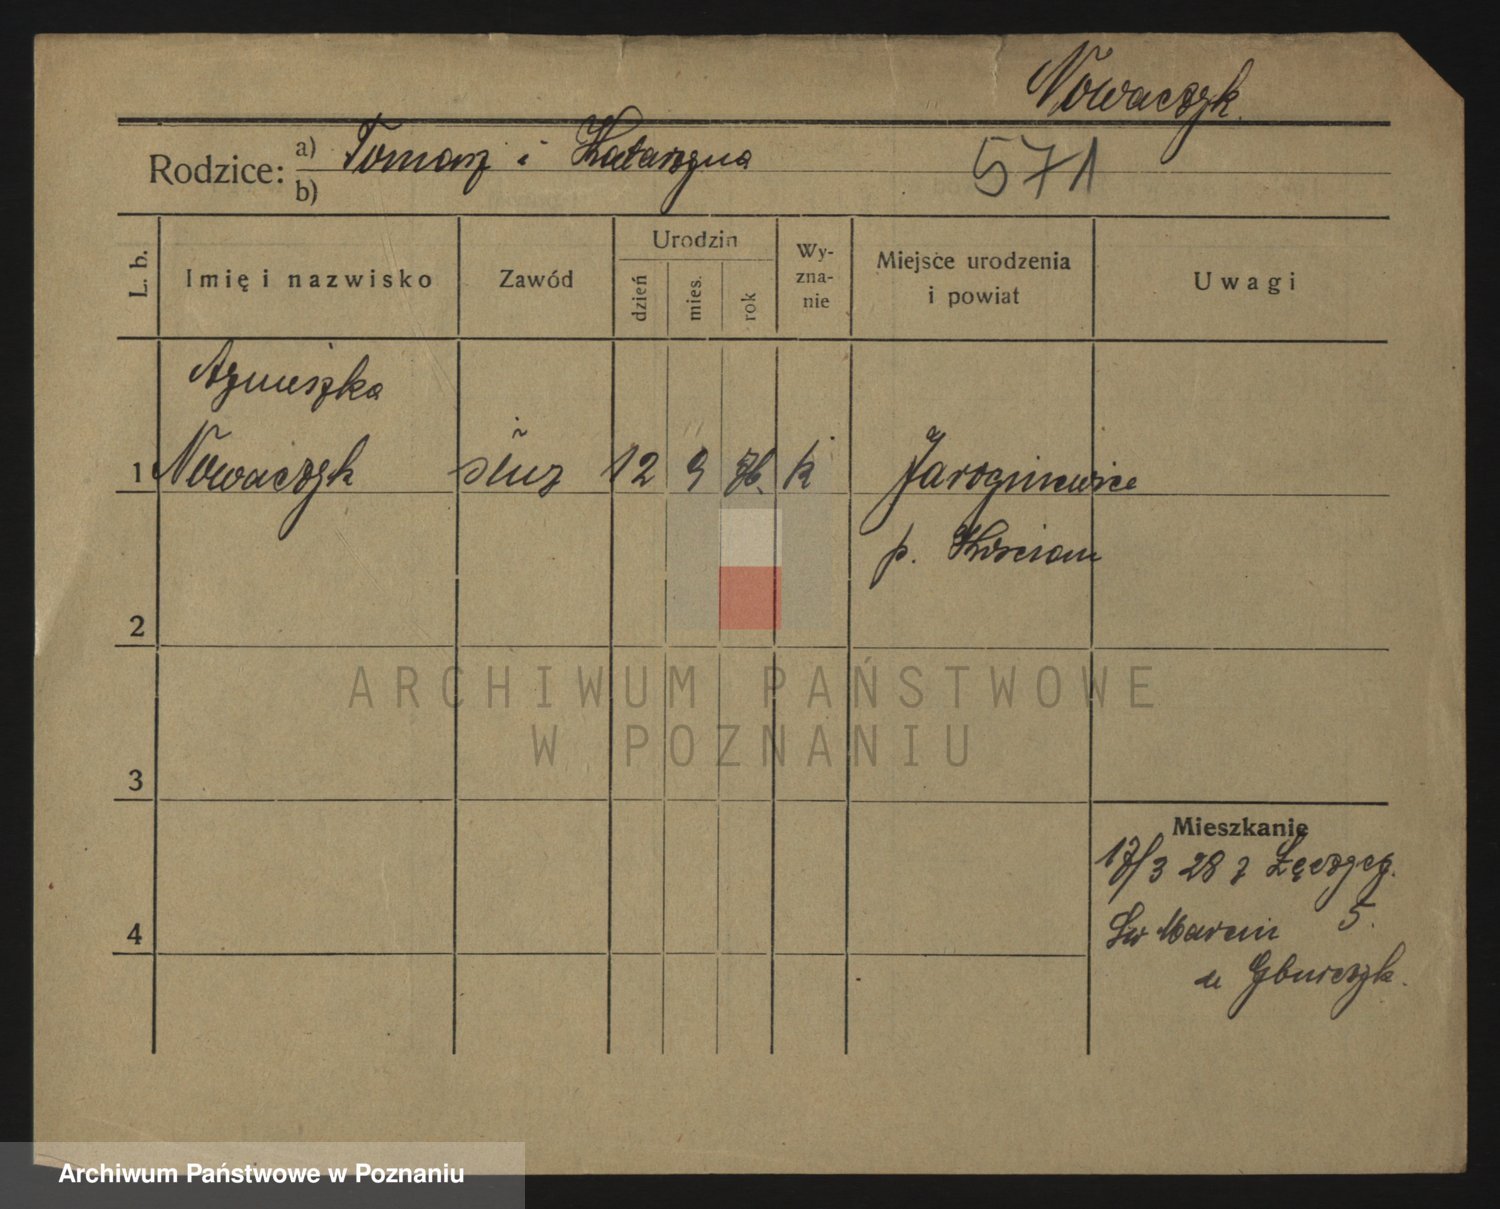 Nowaczyk
Rodzice: a) Tomasz i Katarzyna
b)
571
L. b.
Imię i nazwisko
Zawód
Urodzin
dzień
mies.
rok
Wy-
zna-
nie
Miejsce urodzenia
i powiat
Uwagi
Agnieszka
1 Nowaczyk służ 12 9 76. k Jarogniewice
p. Kościan
2
ARCHIWUM PAŃSTWOWE
W POZNANIU
3
Mieszkanie
17/3 28 z
4
Św Marcin 5.
u
Archiwum Państwowe w Poznaniu